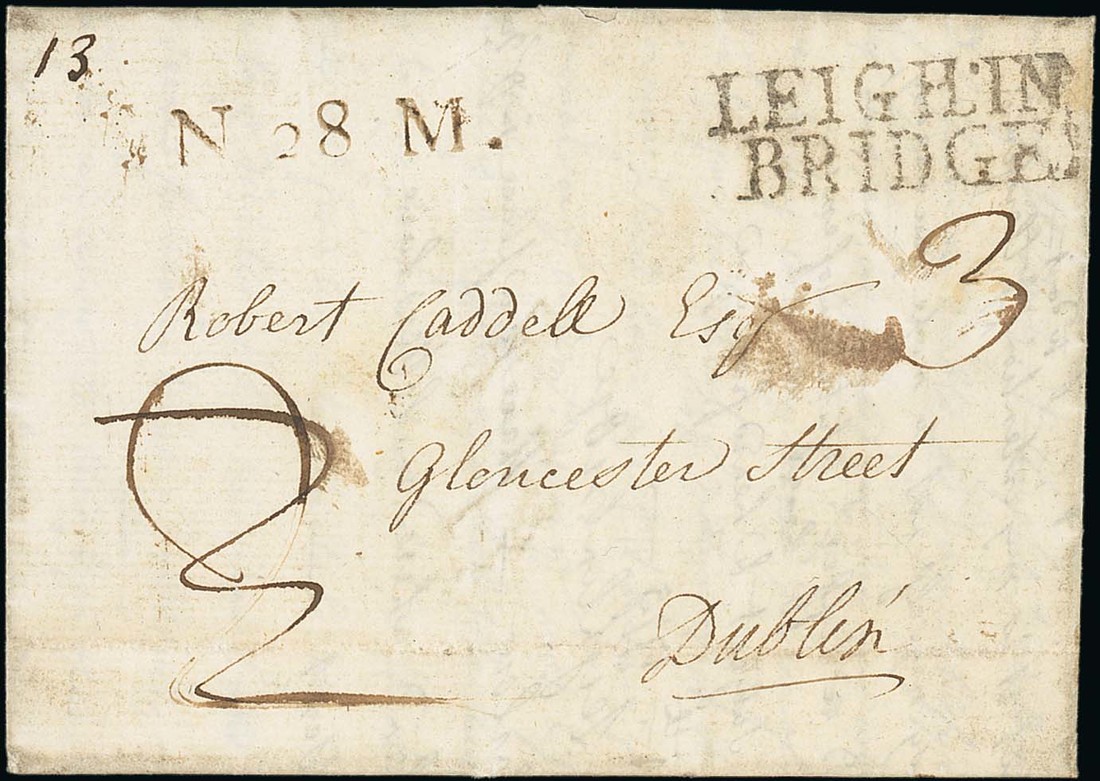 13
N 28 M.
LEIGH:IN
BRIDGE
3
Robert Caddell Esq
Gloucester Street
Dublin